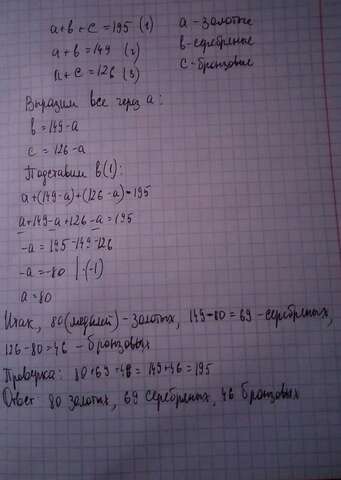 a+b+c=195 (1) a-золотые
a+b=149 (2) b-серебряные
a+c=126 (3) c-бронзовые
Выразим все через a:
b=149-a
c=126-a
Подставим в(1):
a+(149-a)+(126-a)=195
a+149-a+126-a=195
-a=195-149-126
-a=-80 |·(-1)
a=80
Итак, 80(медалей)-золотых, 149-80=69-серебряных,
126-80=46-бронзовых
Проверка: 80+69+46=149+46=195
Ответ: 80 золотых, 69 серебряных, 46 бронзовых